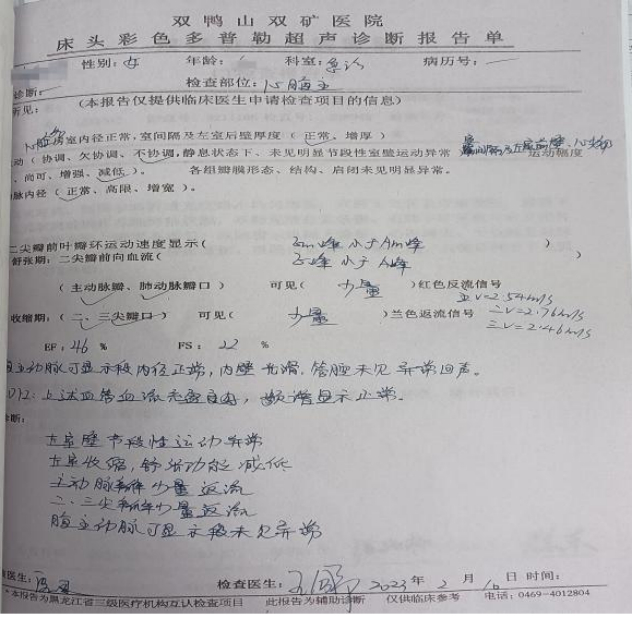 双鸭山双矿医院
床头彩色多普勒超声诊断报告单
性别：女 年龄： 科室：急诊 病历号：
诊断： 检查部位：心腹主
所见： （本报告仅提供临床医生申请检查项目的信息）
房室内径正常，室间隔及左室后壁厚度（正常、增厚）
动（协调、欠协调、不协调，静息状态下、未见明显节段性室壁运动异常 运动幅度
、尚可、增强、减低）。 各组瓣膜形态、结构、启闭未见明显异常。
脉内径（正常、高限、增宽）。
二尖瓣前叶瓣环运动速度显示（ Em峰小于Am峰 ）
舒张期：二尖瓣前向血流（ E峰小于A峰 ）
（主动脉瓣、肺动脉瓣口） 可见（ 少量 ）红色反流信号
V=2.54m/s
收缩期：（二、三尖瓣口） 可见（ 少量 ）兰色返流信号 二V=2.76m/s
三V=2.46m/s
EF：46 % FS：22 %
主动脉可显示段内径正常，内壁光滑，管腔未见异常回声。
上述血管血流充盈良好，频谱显示正常。
诊断：
左室壁节段性运动异常
左室收缩，舒张功能减低
主动脉瓣少量返流
二、三尖瓣少量返流
腹主动脉可显示段未见异常
医生： 检查医生： 2023年2月16日 时间：
*本报告为黑龙江省三级医疗机构互认检查项目 此报告为辅助诊断 仅供临床参考 电话：0469-4012804